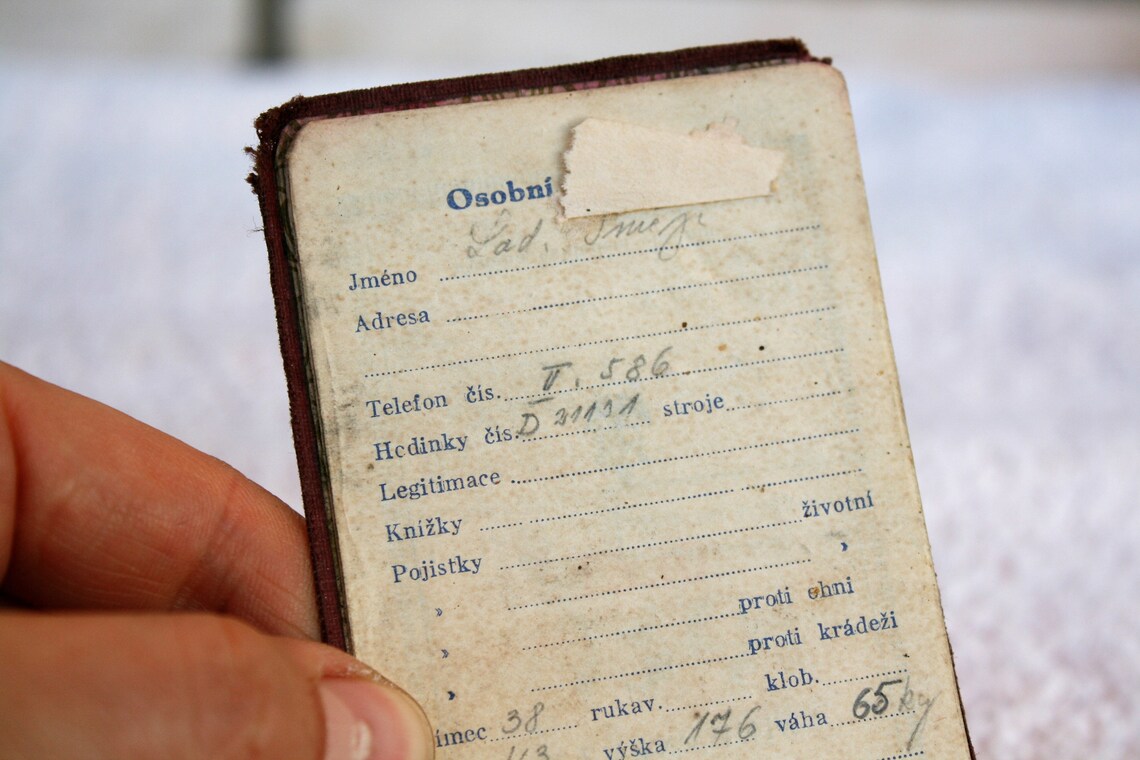 Osobní
Jméno Lad.
Adresa
Telefon čís. II. 586
Hodinky čís. D 21131 stroje
Legitimace
Knížky
Pojistky životní
» »
» proti ohni
» proti krádeži
ímec 38 rukav. klob.
43 výška 176 váha 65 kg